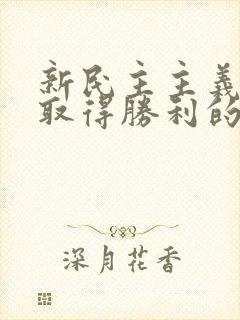 新民主主義
取得勝利的
深月花香